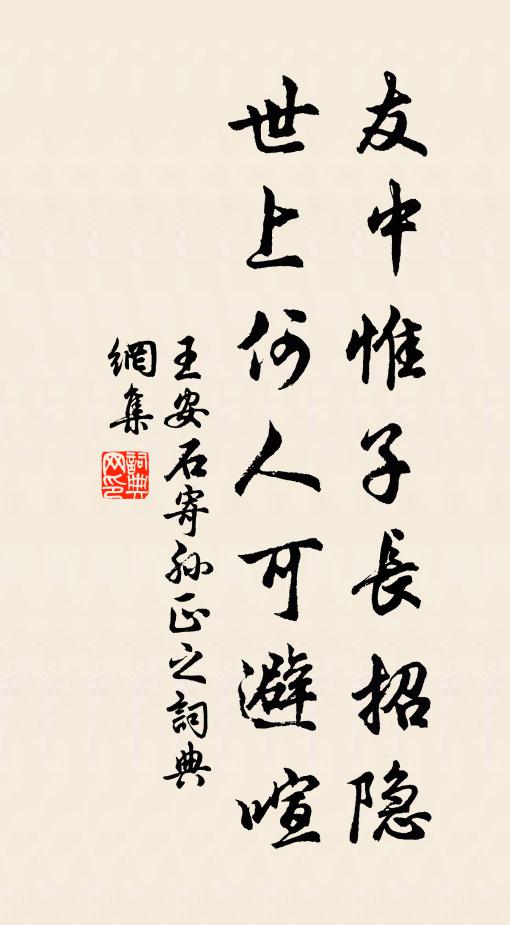 友中惟子長招隐
世上何人可避喧
王安石寄孙正之詞典
網集
詞典网印